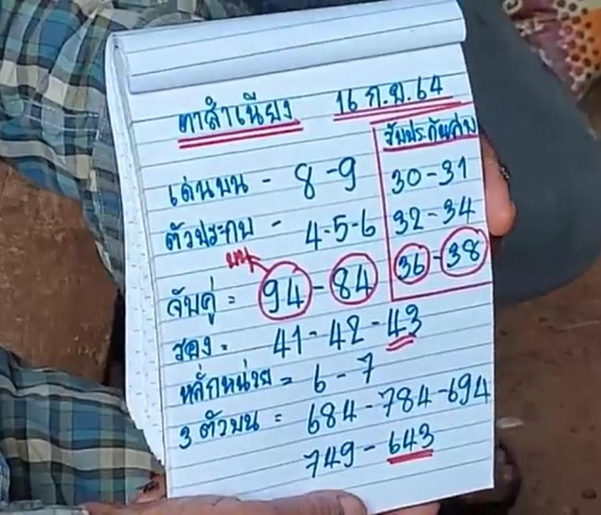 ตาสำเนียง 16 ก.ย.64
รับประกันล่าง
เด่นบน - 8-9
30-31
ตัวประกบ - 4-5-6
32-34
บน
จับคู่ = 94-84
36-38
รอง = 41-42-43
หลักหน่วย = 6-7
3 ตัวบน = 684-784-694
749-643